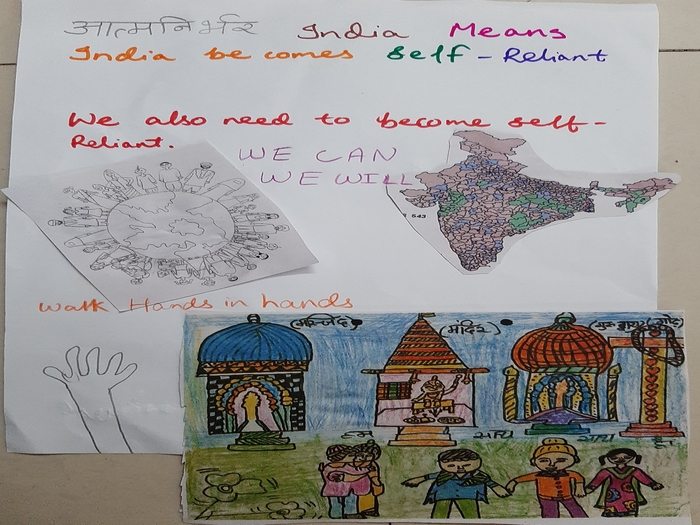 आत्मनिर्भर India Means
India becomes self - Reliant
We also need to become self -
Reliant.
WE CAN
WE WILL
543
Walk Hands in hands
(मस्जिद) (मंदिर)
हम साथ साथ है।